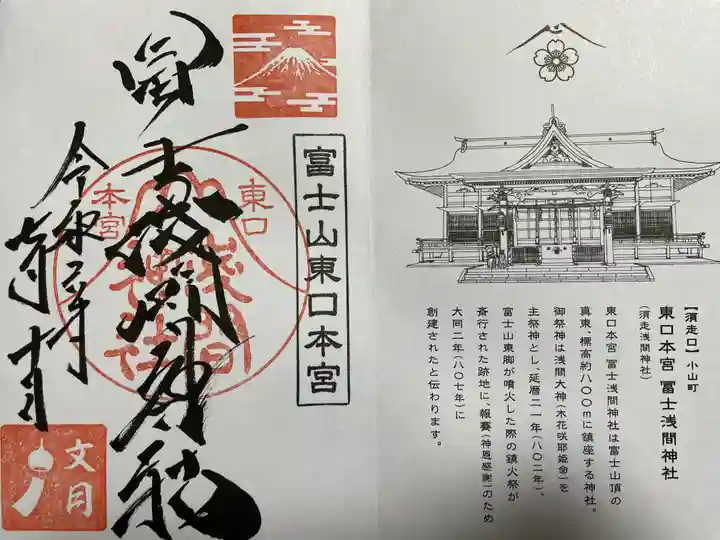 冨士浅間神社
令和二年
七月十日
富士山東口本宮
東口
本宮
文月
【須走口】小山町
東口本宮 冨士浅間神社
(須走浅間神社)
東口本宮 冨士浅間神社は富士山頂の
真東、標高約八〇〇mに鎮座する神社。
御祭神は浅間大神(木花咲耶姫命)を
主祭神とし、延暦二一年(八〇二年)、
富士山東脚が噴火した際の鎮火祭が
斎行された跡地に、報賽(神恩感謝)のため
大同二年(八〇七年)に
創建されたと伝わります。